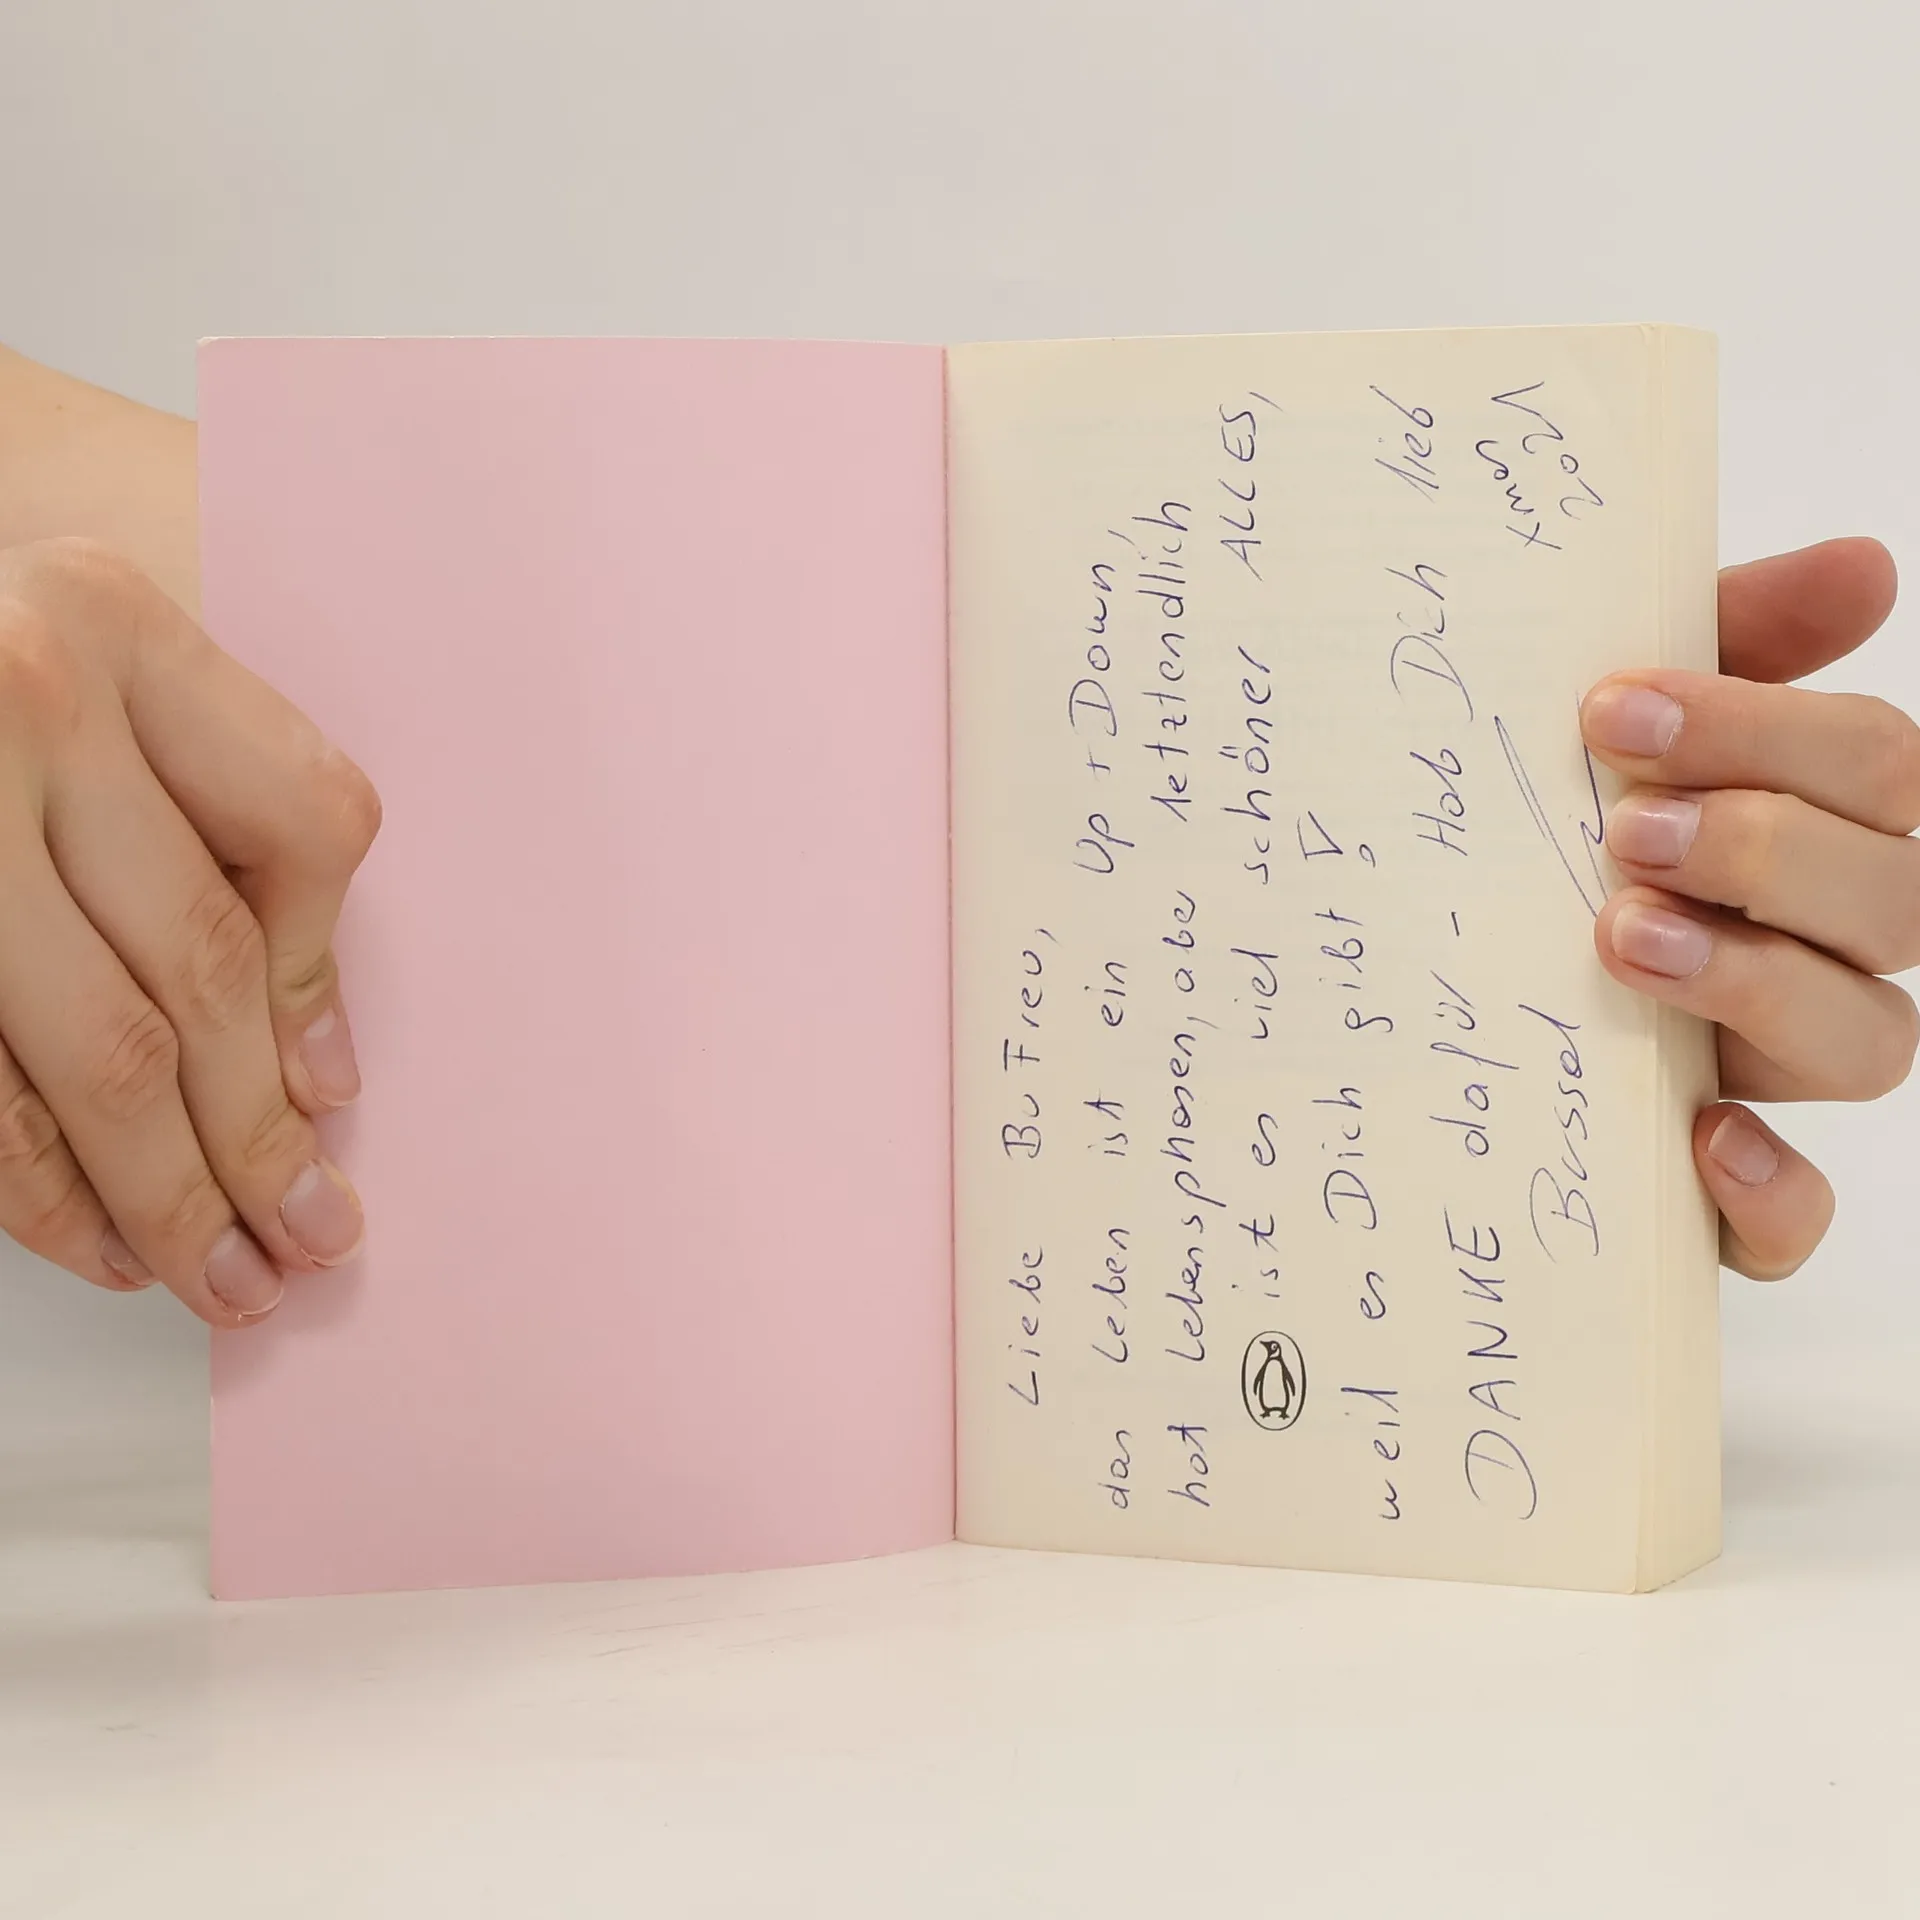 Liebe BuFreu,
das Leben ist ein Up + Down,
hat Lebensphasen, abe letztendlich
ist es viel schöner ALLES,
weil es Dich gibt!
DANKE dafür - Hab Dich lieb
Bussal
xmas
2021